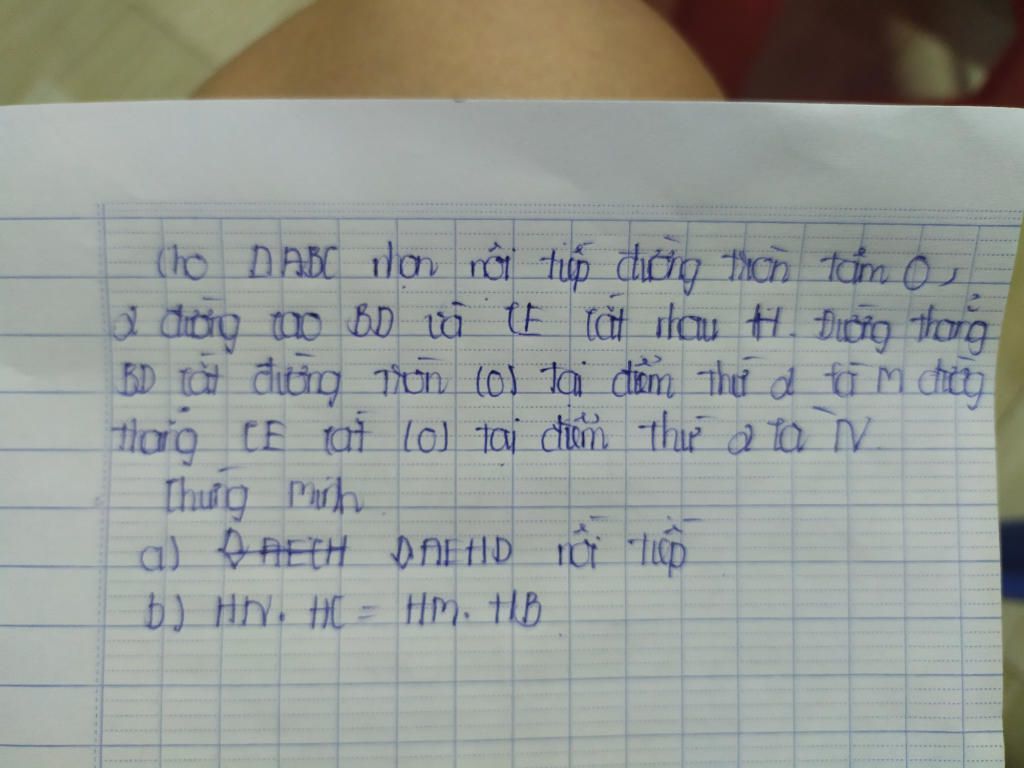 Cho DABC nhọn nội tiếp đường tròn tâm O,
2 đường cao BD và CE cắt nhau H. Đường thẳng
BD cắt đường tròn (O) tại điểm thứ 2 là M đường
thẳng CE cắt (O) tại điểm thứ 2 là N
Chứng minh
a) DAEHD nội tiếp
b) HN. HC = HM. HB